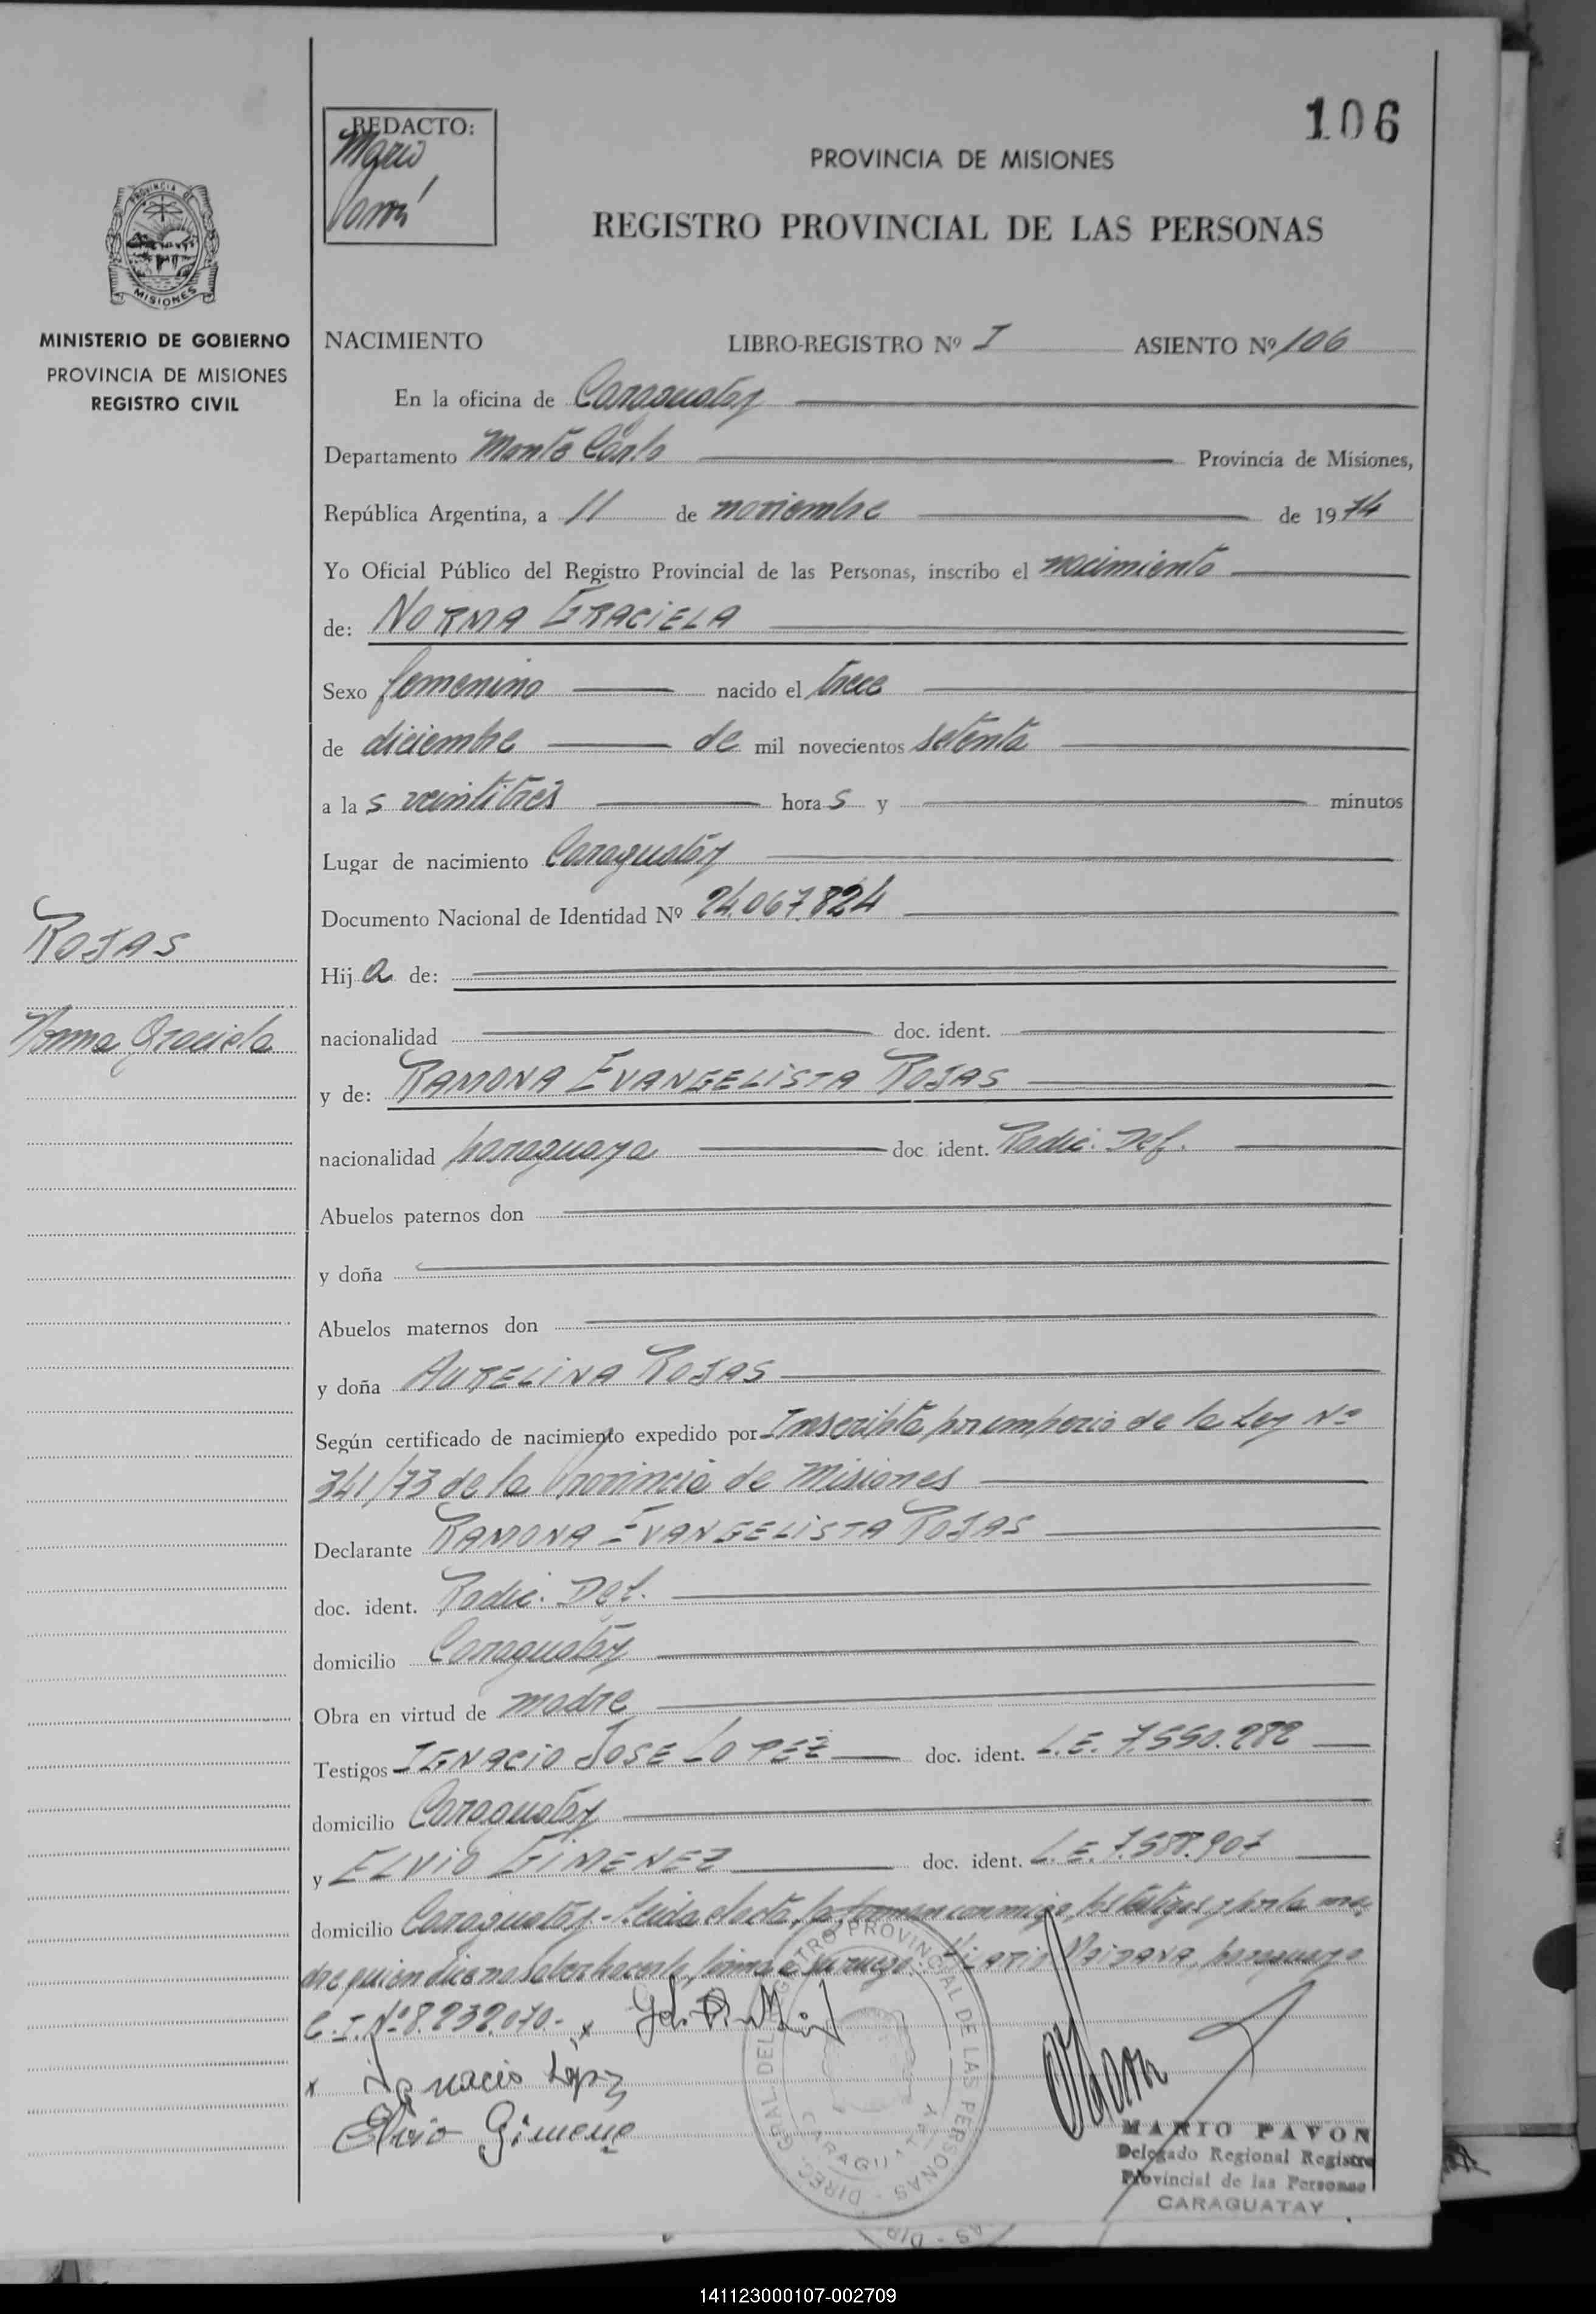 106
REDACTO:
Mario
Pavón
PROVINCIA DE MISIONES
REGISTRO PROVINCIAL DE LAS PERSONAS
PROVINCIA DE
MISIONES
MINISTERIO DE GOBIERNO
PROVINCIA DE MISIONES
REGISTRO CIVIL
NACIMIENTO LIBRO-REGISTRO Nº I ASIENTO Nº 106
En la oficina de Caraguatay
Departamento Monte Carlo Provincia de Misiones,
República Argentina, a 11 de noviembre de 1974
Yo Oficial Público del Registro Provincial de las Personas, inscribo el nacimiento
de: NORMA GRACIELA
Sexo femenino nacido el trece
de diciembre de mil novecientos setenta
a las veintitrés horas y minutos
Lugar de nacimiento Caraguatay
Documento Nacional de Identidad Nº 24.067.824
ROJAS
Norma Graciela
Hija de:
nacionalidad doc. ident.
y de: RAMONA EVANGELISTA ROJAS
nacionalidad paraguaya doc ident. Radic. Def.
Abuelos paternos don
y doña
Abuelos maternos don
y doña AURELINA ROJAS
Según certificado de nacimiento expedido por Inscripta por imperio de la Ley Nº
341/73 de la Provincia de Misiones
Declarante RAMONA EVANGELISTA ROJAS
doc. ident. Radic. Def.
domicilio Caraguatay
Obra en virtud de madre
Testigos IGNACIO JOSE LOPEZ doc. ident. L.E. 7.550.282
domicilio Caraguatay
y ELVIO GIMENEZ doc. ident. L.E. 7.588.907
domicilio Caraguatay.- Leida el acta, la firman conmigo, los testigos y por la ma
dre quien dice no saber hacerlo, firma a su ruego: paraguayo
C.I. Nº 8.232.070.-
Ignacio Lopez
Elvio Gimene
DIREC. GRAL. DEL REGISTRO PROVINCIAL DE LAS PERSONAS
CARAGUATAY
MARIO PAVON
Delegado Regional Registro
Provincial de las Personas
CARAGUATAY
141123000107-002709